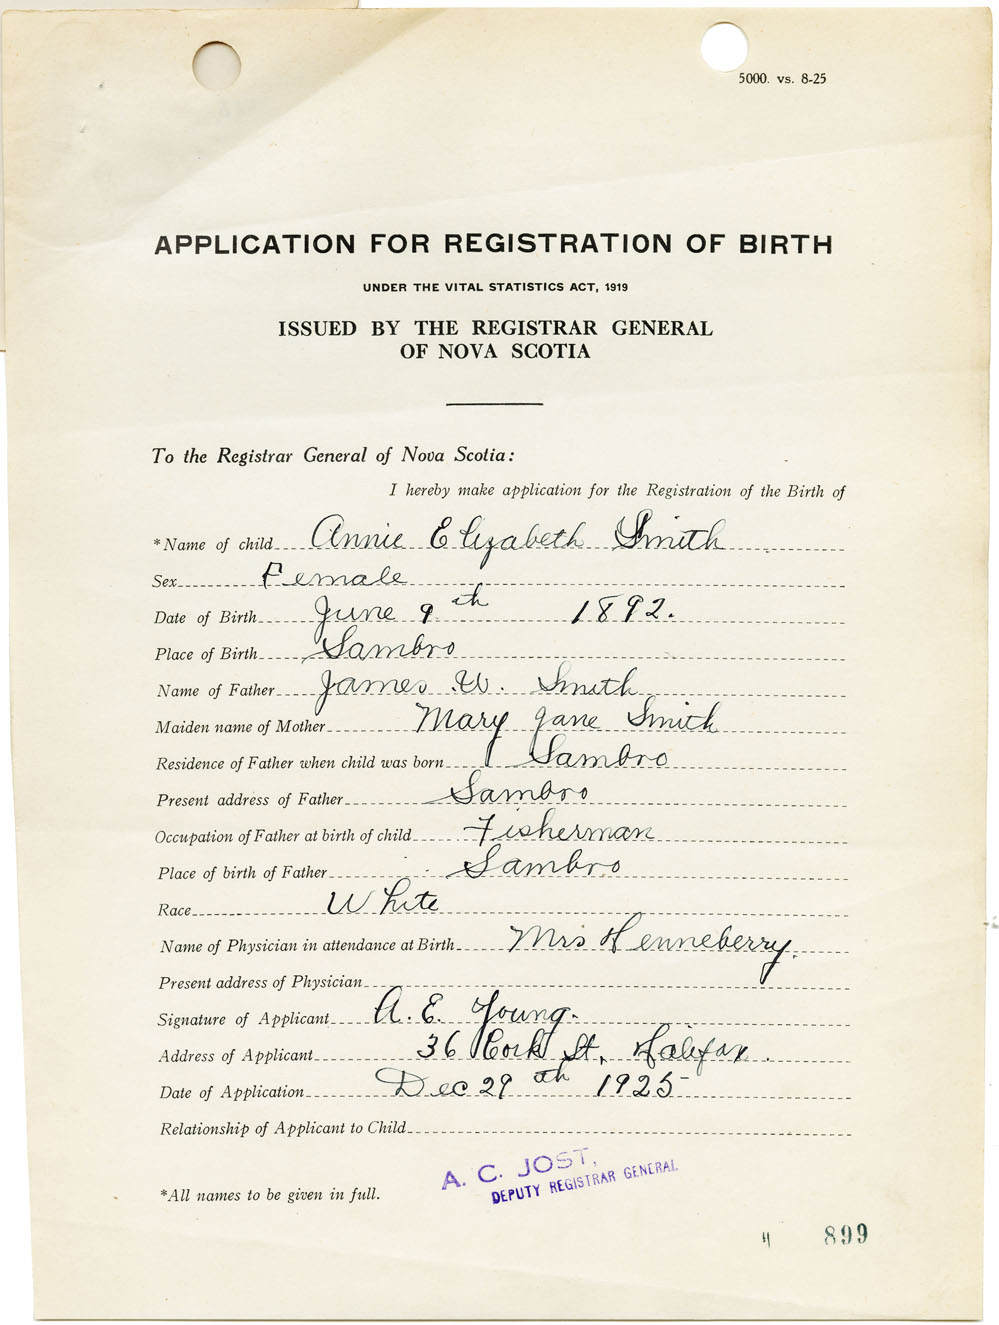 5000. vs. 8-25
APPLICATION FOR REGISTRATION OF BIRTH
UNDER THE VITAL STATISTICS ACT, 1919
ISSUED BY THE REGISTRAR GENERAL
OF NOVA SCOTIA
To the Registrar General of Nova Scotia:
I hereby make application for the Registration of the Birth of
*Name of child Annie Elizabeth Smith
Sex Female
Date of Birth June 9th 1892.
Place of Birth Sambro
Name of Father James W. Smith
Maiden name of Mother Mary Jane Smith
Residence of Father when child was born Sambro
Present address of Father Sambro
Occupation of Father at birth of child Fisherman
Place of birth of Father Sambro
Race White
Name of Physician in attendance at Birth Mrs Henneberry.
Present address of Physician
Signature of Applicant A. E. Young.
Address of Applicant 36 Cork St, Halifax.
Date of Application Dec 29th 1925
Relationship of Applicant to Child
A. C. JOST,
DEPUTY REGISTRAR GENERAL
*All names to be given in full.
899